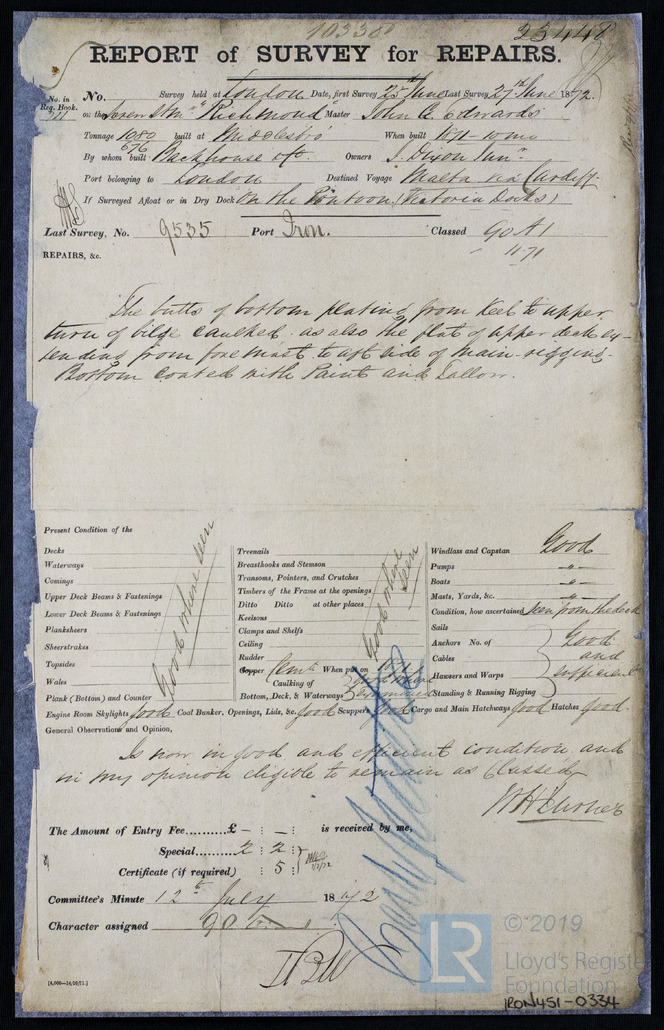 10330 25448
REPORT of SURVEY for REPAIRS.
No. in Reg. Book.
No. Survey held at London Date, first Survey 25th June Last Survey 27th June 1872.
on the Screw Str "Richmond" Master John E. Edwards
Tonnage 1080 built at Middlesbro' When built 1871
676
By whom built Backhouse & Co. Owners J. Dixon Junr.
Port belonging to London Destined Voyage Malta via Cardiff
If Surveyed Afloat or in Dry Dock On the Pontoon (Victoria Docks)
Last Survey, No. 9535 Port Iron. Classed 90 A 1
11.71
REPAIRS, &c.
The butts of bottom plating from Keel to upper
turn of bilge caulked. as also the flat of upper deck ex-
tending from foremast to aft side of main rigging.
Bottom coated with Paint and Tallow.
Present Condition of the
Decks
Waterways
Comings
Upper Deck Beams & Fastenings
Lower Deck Beams & Fastenings
Planksheers
Sheerstrakes
Topsides
Wales
Plank (Bottom) and Counter
Good where seen
Treenails
Breasthooks and Stemson
Transoms, Pointers, and Crutches
Timbers of the Frame at the openings
Ditto Ditto at other places
Keelsons
Clamps and Shelfs
Ceiling
Rudder
Copper Cemt. When put on 1871
Caulking of
Bottom, Deck, & Waterways
Good where seen
Windlass and Capstan Good
Pumps -"-
Boats -"-
Masts, Yards, &c. -"-
Condition, how ascertained Seen from the deck
Sails
Anchors No. of Good
Cables and
Hawsers and Warps sufficient
Standing & Running Rigging
Engine Room Skylights Good Coal Bunker, Openings, Lids, &c. Good Scuppers Good Cargo and Main Hatchways Good Hatches Good.
General Observations and Opinion,
Is now in good and efficient condition and
in my opinion eligible to remain as Classed
The Amount of Entry Fee.........£ - : - : is received by me,
Special......... 2 : 2 :
Certificate (if required) : 5 :
Committee's Minute 12th July 1872
Character assigned 90
[4,000—14/10/71.]
© 2019
LR
Lloyd's Register
Foundation
IRON451-0334